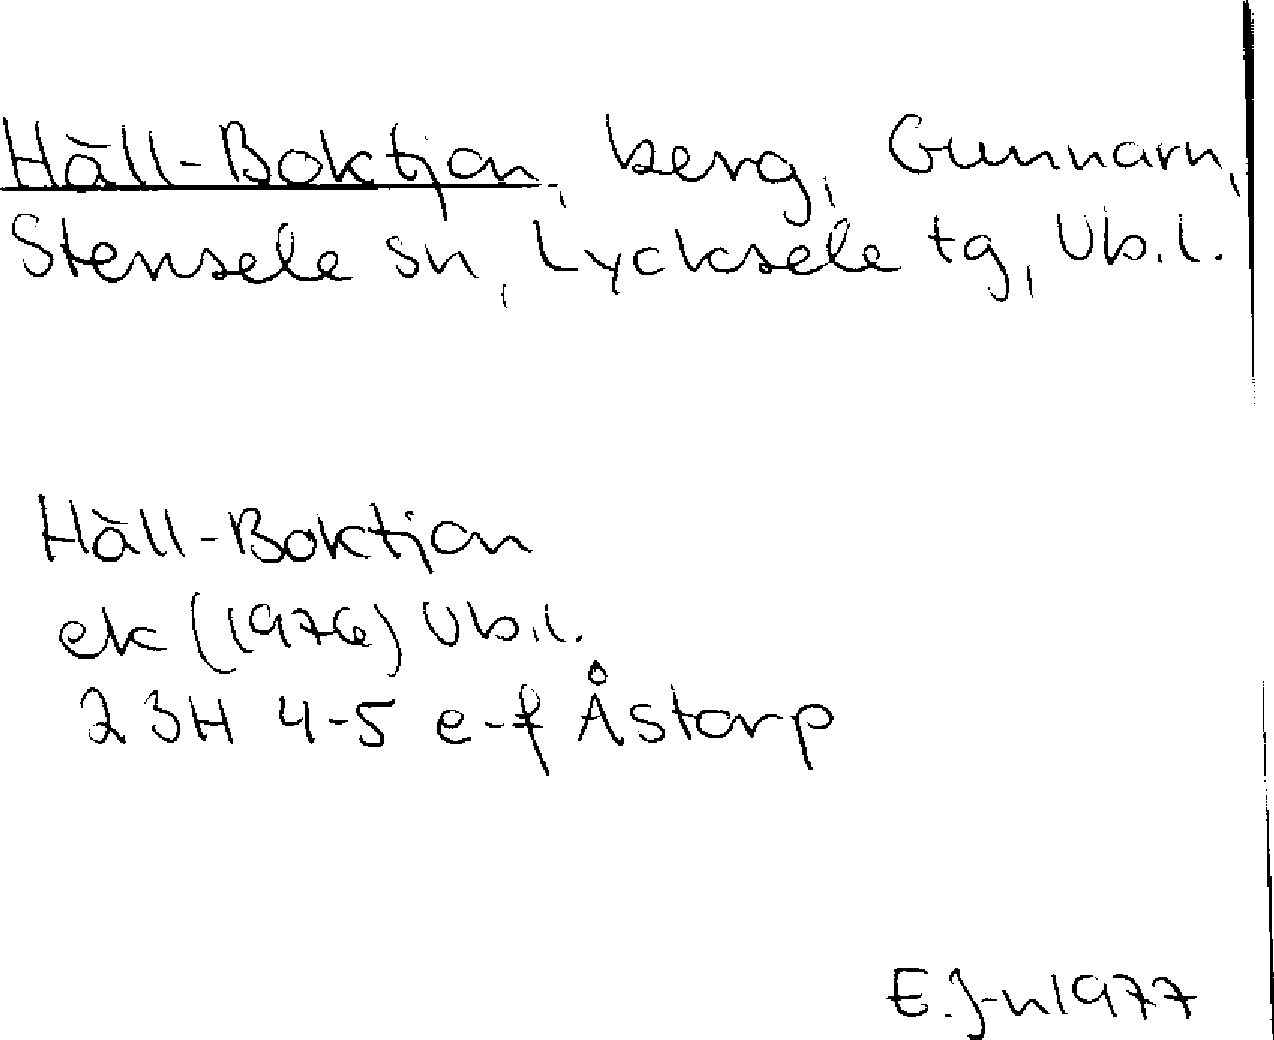 Häll-Boktjan, berg, Gunnarn,
Stensele sn, Lycksele tg, Vb.l.
Häll-Boktjan
ek (1976) Vb.l.
23H 4-5 e-f Åstorp
E.J-n 1977